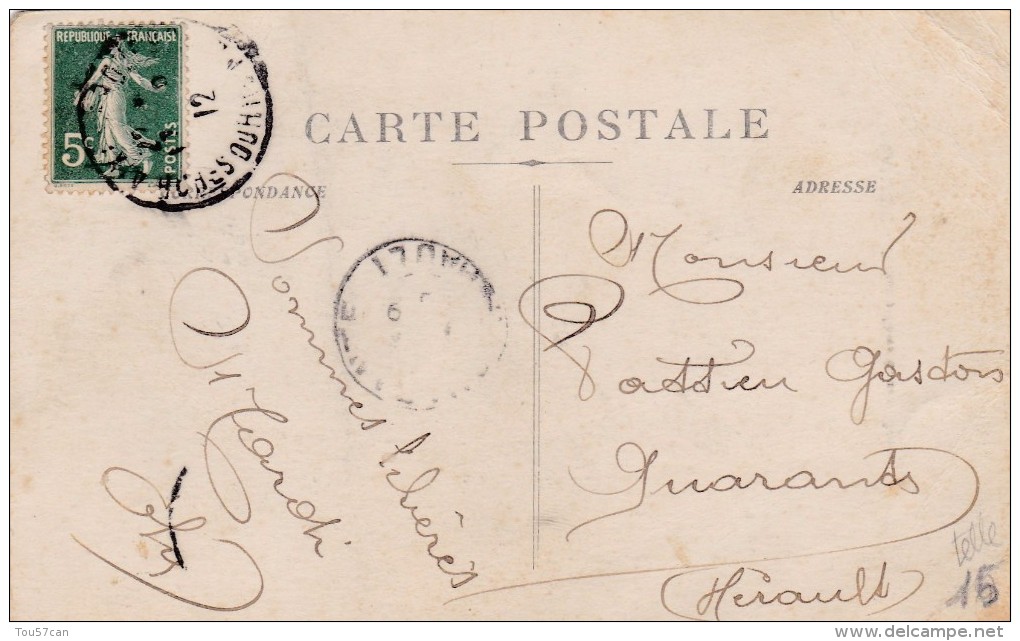 REPUBLIQUE FRANÇAISE
5c
POSTES
12
CARTE POSTALE
CORRESPONDANCE
ADRESSE
Sommes libérés
Mardi
Monsieur
Gaston
Quarante
(Hérault)
telle
15
Tou57can
delcampe.net